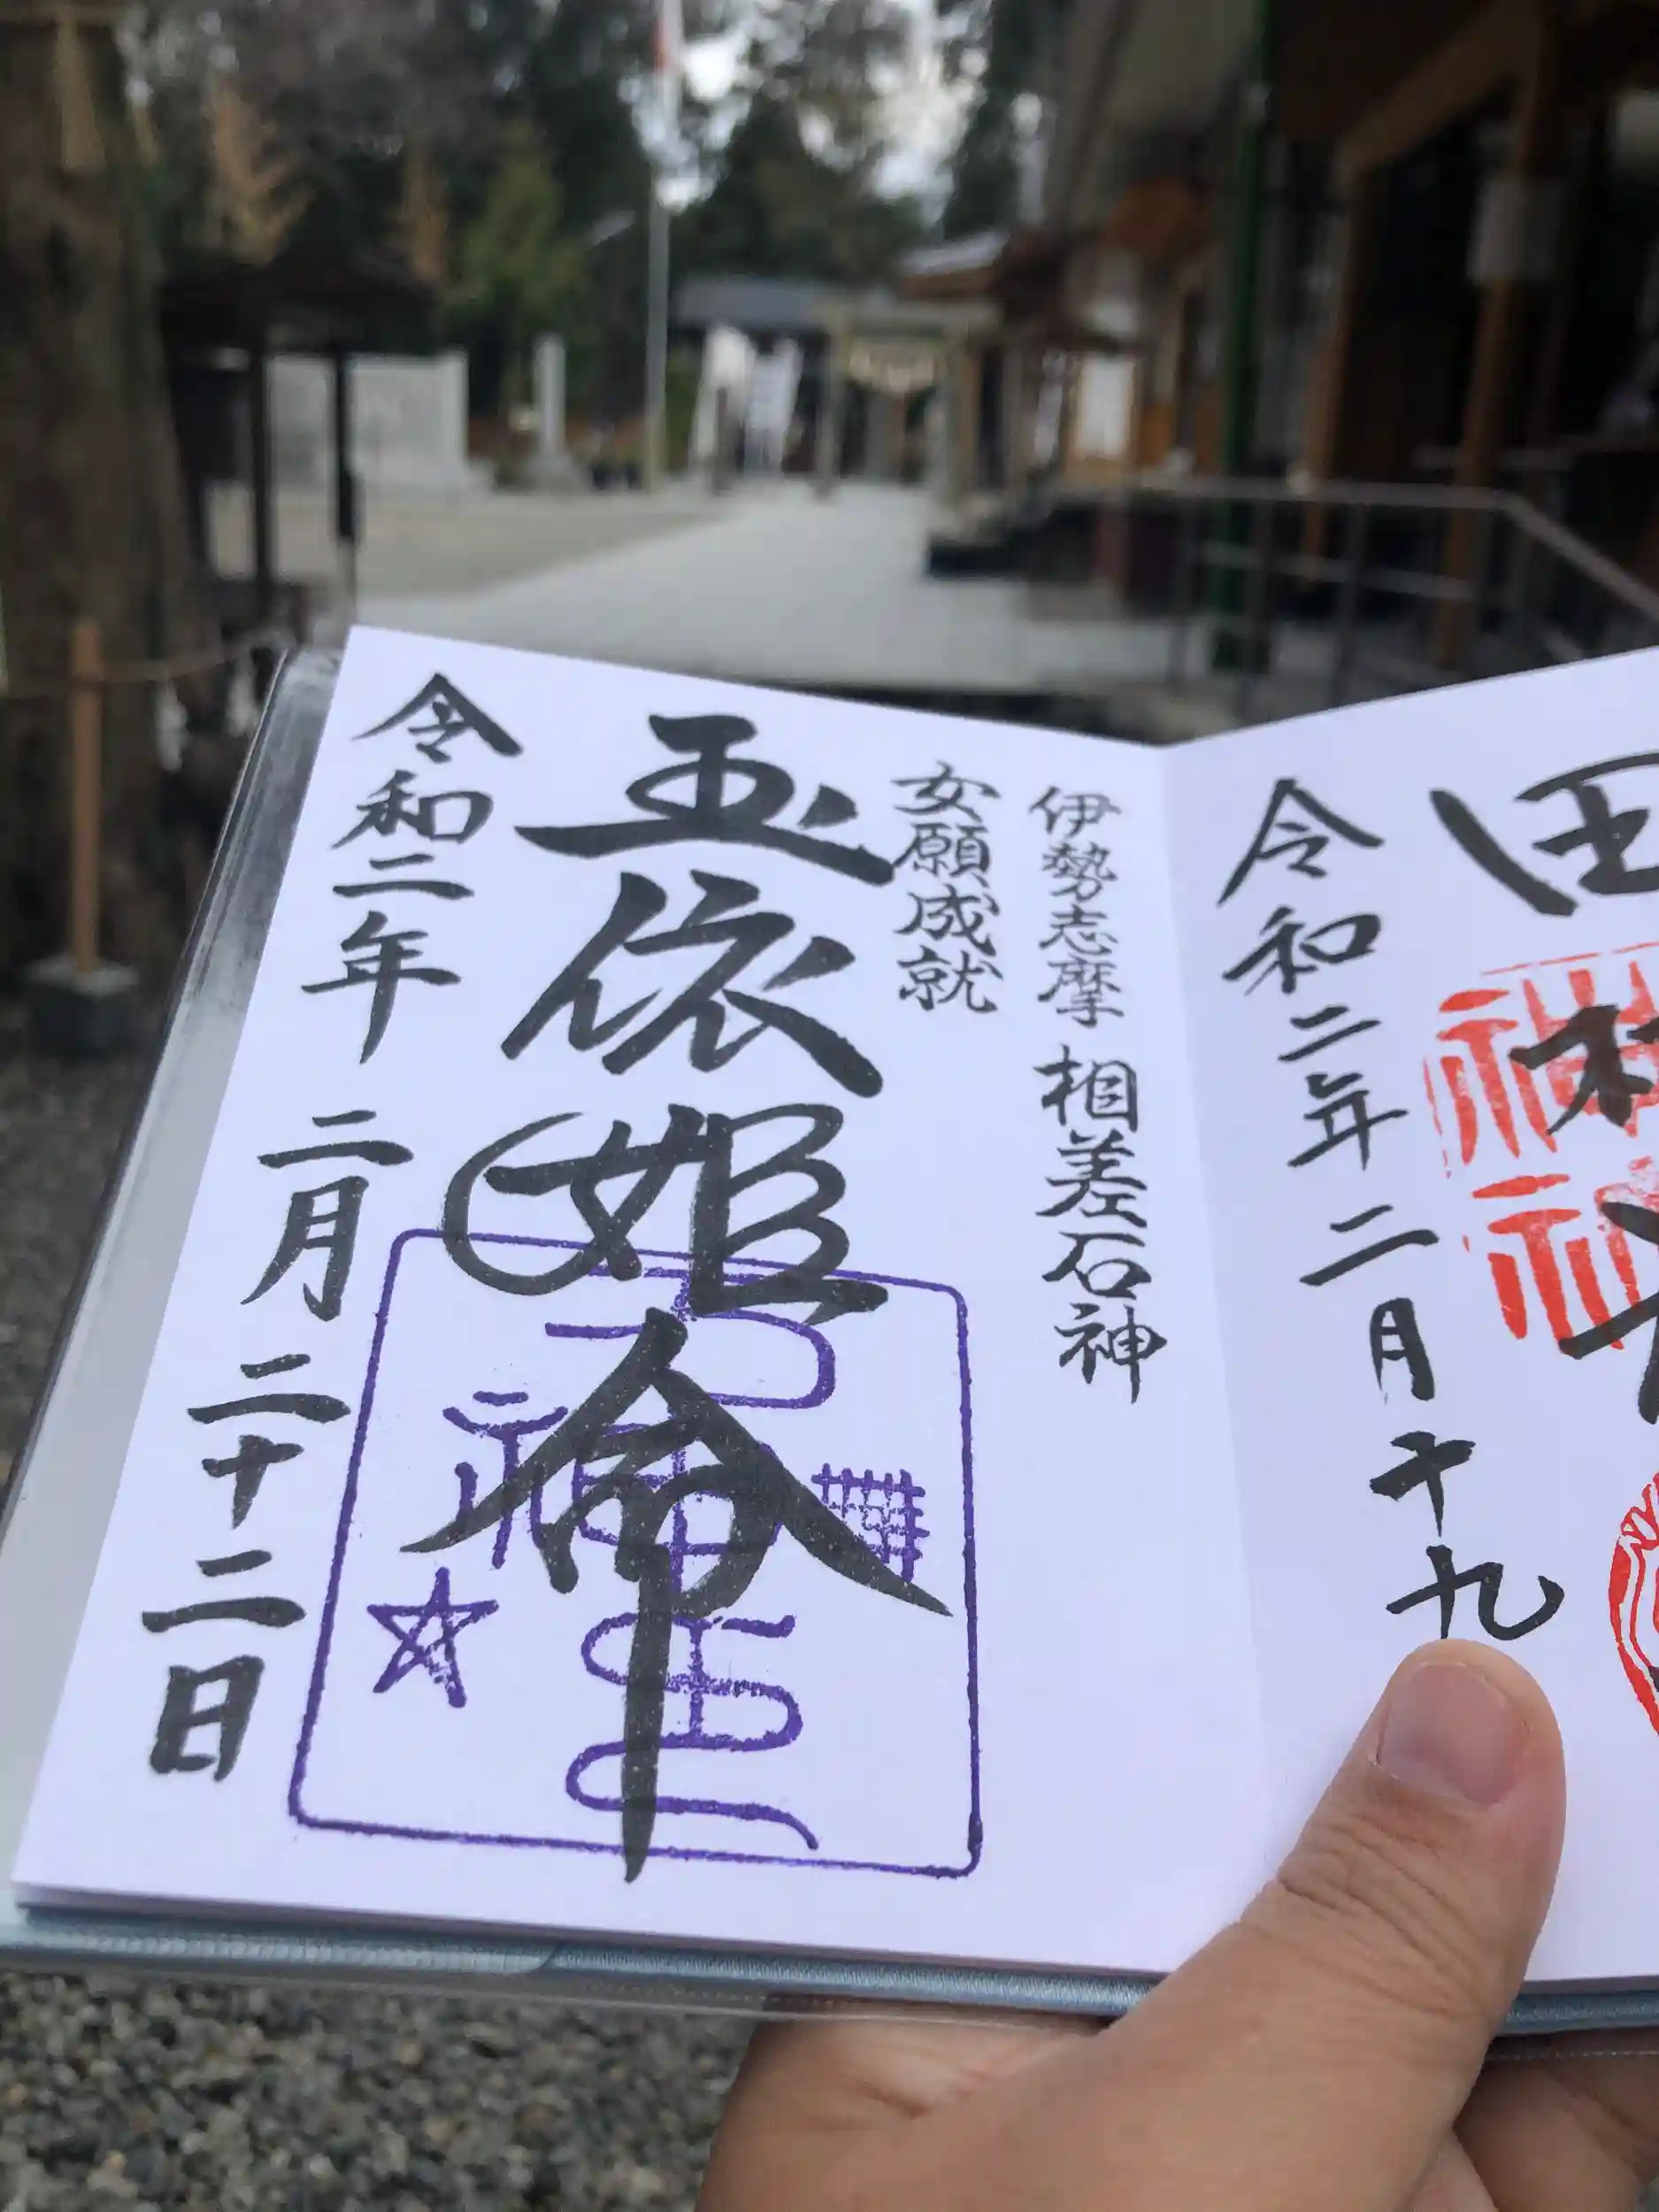 田村
神社
令和二年二月十九
伊勢志摩 相差石神
女願成就
玉依姫命
令和二年 二月 二十二日